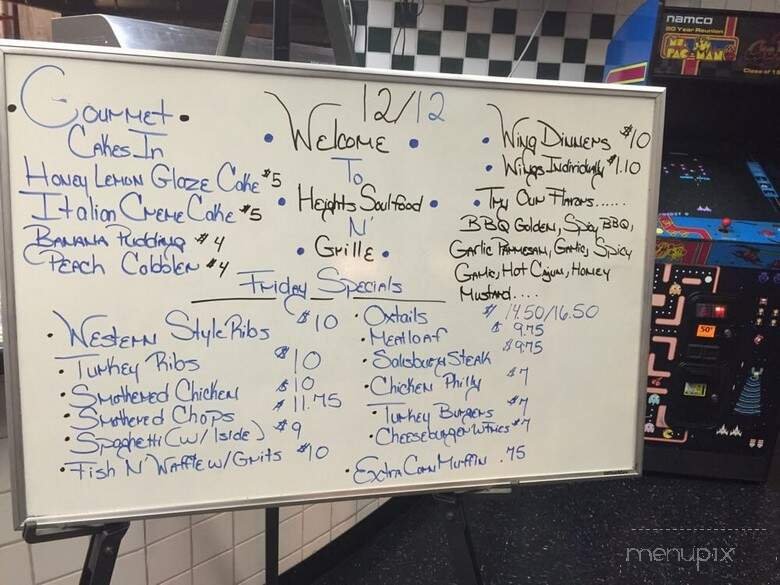 GOURMET
CAKES IN
HONEY LEMON GLAZE CAKE $5
ITALIAN CREME CAKE $5
BANANA PUDDING $4
PEACH COBBLER $4
12/12
WELCOME
TO
HEIGHTS SOULFOOD
N'
GRILLE
• WING DINNERS $10
• WINGS INDIVIDUALLY $1.10
• TRY OUR FLAVORS......
BBQ GOLDEN, SPICY BBQ,
GARLIC PARMESAN, GARLIC, SPICY
GARLIC, HOT CAJUN, HONEY
MUSTARD....
FRIDAY SPECIALS
• WESTERN STYLE RIBS $10
• TURKEY RIBS $10
• SMOTHERED CHICKEN $10
• SMOTHERED CHOPS $11.75
• SPAGHETTI (W/ 1 SIDE) $9
• FISH N' WAFFLE W/ GRITS $10
• OXTAILS $14.50/16.50
• MEATLOAF $9.75
• SALISBURY STEAK $9.75
• CHICKEN PHILLY $7
• TURKEY BURGERS $7
• CHEESEBURGER W/FRIES $7
• EXTRA CORN MUFFIN .75
namco
20 Year Reunion
MS. PAC-MAN
Class of 1
50¢
menupix